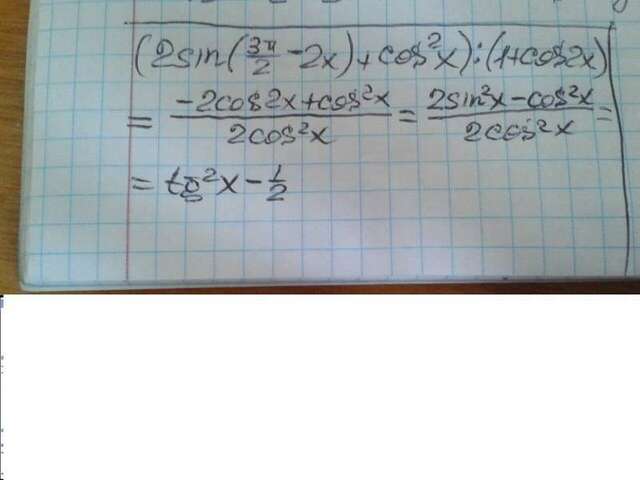 (2sin(3π/2 - 2x) + cos²x) : (1+cos2x)
= (-2cos2x+cos²x)/(2cos²x) = (2sin²x-cos²x)/(2cos²x) =
= tg²x - 1/2